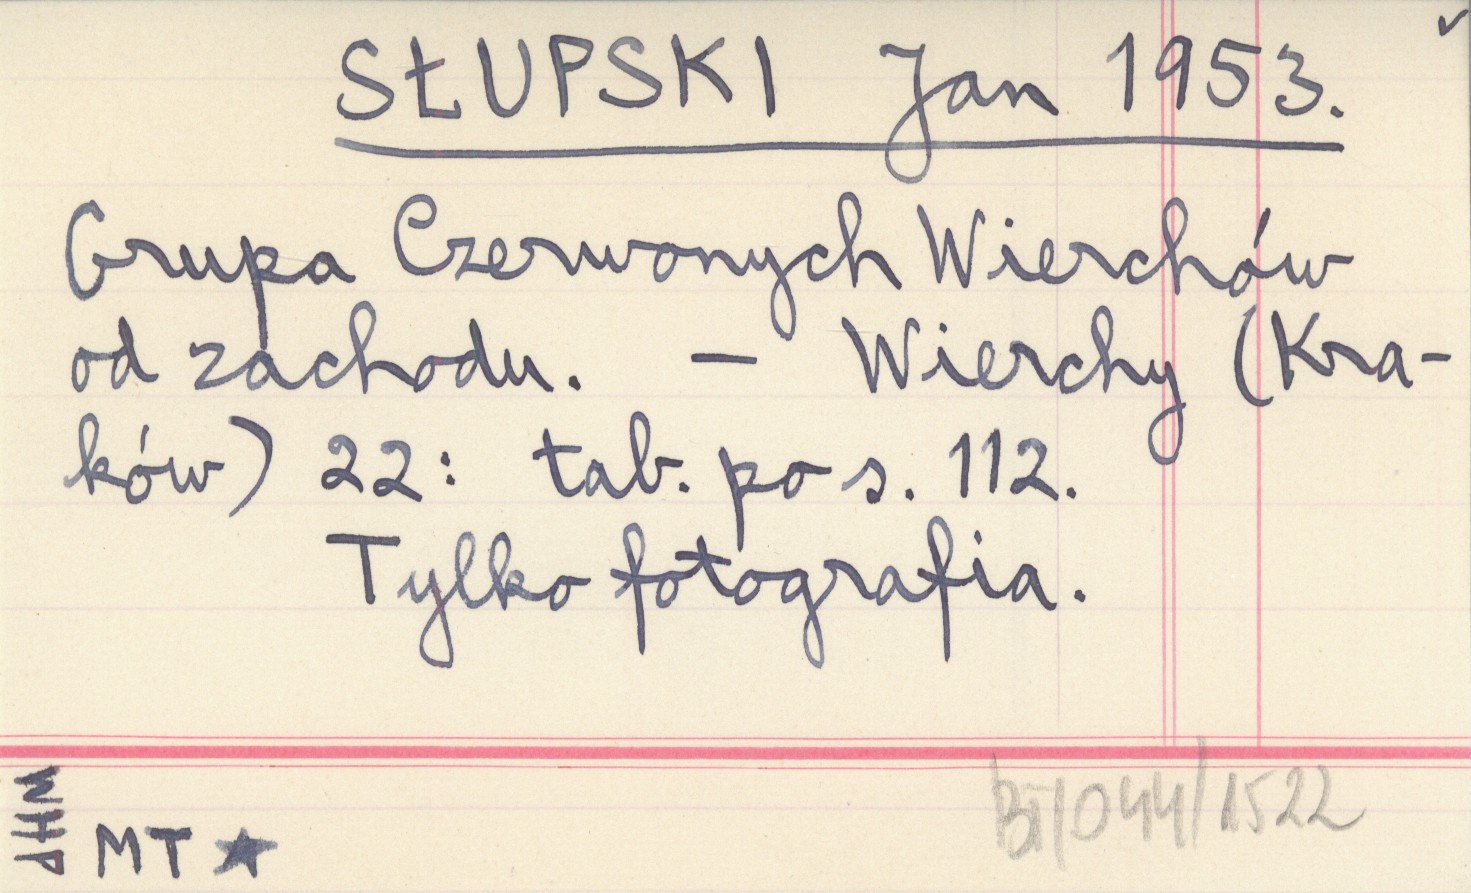 SŁUPSKI Jan 1953.
Grupa Czerwonych Wierchów
od zachodu. — Wierchy (Kra-
ków) 22: tab. po s. 112.
Tylko fotografia.
WHP
MT ★
BT/044/1522